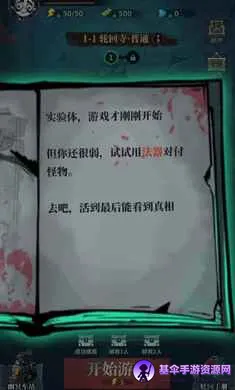 50/50
1-1 轮回寺·普通
1
实验体，游戏才刚刚开始
但你还很弱，试试用法器对付
怪物。
去吧，活到最后能看到真相
开始游
基伞手游资源网